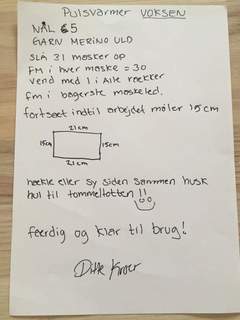 Pulsvarmer VOKSEN
NÅL 5
GARN MERINO ULD
SLÅ 31 masker op
FM i hver maske = 30
vend med 1 i Alle rækker
fm i bagerste maskeled.
fortsæt indtil arbejdet måler 15 cm
21cm
15cm
15cm
21cm
hækle eller sy siden sammen husk
hul til tommeltotten !!
færdig og klar til brug!
Ditte Krøer